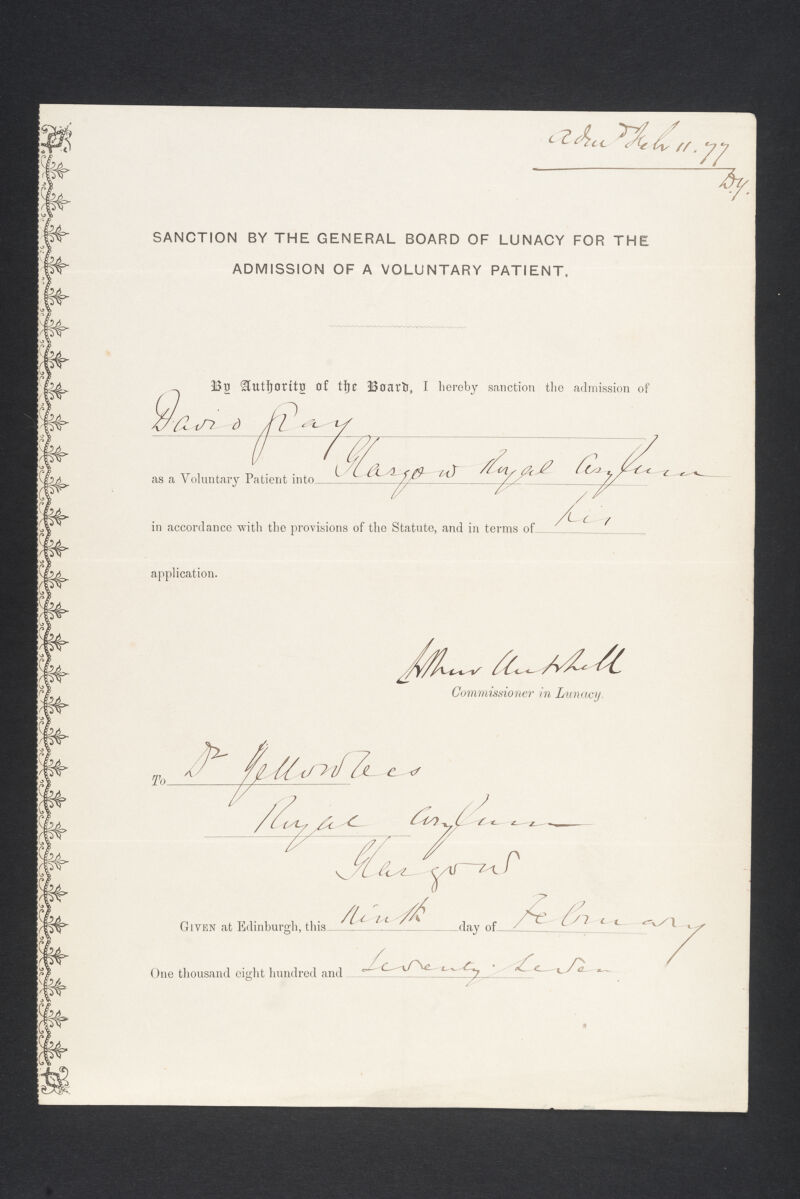 Admd Feby 11. 77
D.Y.
SANCTION BY THE GENERAL BOARD OF LUNACY FOR THE
ADMISSION OF A VOLUNTARY PATIENT.
By Authority of the Board, I hereby sanction the admission of
David Gray
as a Voluntary Patient into Glasgow Royal Asylum
in accordance with the provisions of the Statute, and in terms of his
application.
Arthur Mitchell
Commissioner in Lunacy.
To Dr Yellowlees
Royal Asylum
Glasgow
GIVEN at Edinburgh, this Ninth day of February
One thousand eight hundred and Seventy-Seven